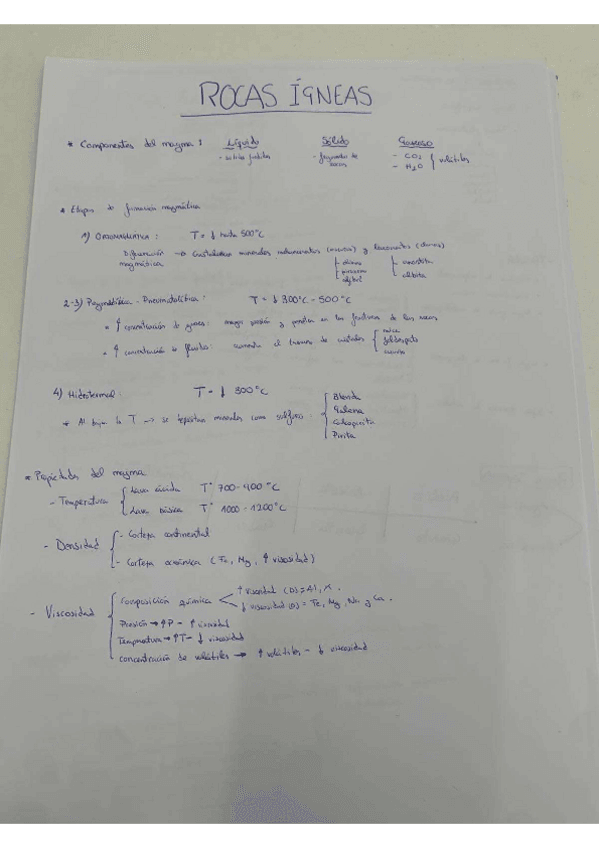 ROCAS ÍGNEAS
* Componentes del magma: Líquido Sólido Gaseoso
- fragmentos de rocas - CO2 volátiles
- H2O
* Etapas de formación magmática
1) ORTOMAGMÁTICA: T = ↓ hasta 500°C
Diferenciación magmática → minerales (oscuros) y leucocratos (claros)
olivino anortita
piroxeno albita
2-3) Pegmatítica - Pneumatolítica: T = ↓ 300°C - 500°C
* ↑ concentración de gases: mayor presión y penetra en las fracturas de las rocas
* ↑ concentración de fluidos: aumenta el tamaño de cristales feldespato
4) Hidrotermal: T = ↓ 300°C
* Al bajar la T → se depositan minerales como sulfuros: Blenda
Galena
Calcopirita
Pirita
* Propiedades del magma
- Temperatura Lava ácida T° 700-900°C
Lava básica T° 1000-1200°C
- Densidad - Corteza continental
- Corteza oceánica (Fe, Mg, ↑ viscosidad)
- Viscosidad Composición química ↑ viscosidad Al, K.
↓ viscosidad Fe, Mg, Na y Ca.
Presión → ↑P - ↑ viscosidad
Temperatura → ↑T - ↓ viscosidad
Concentración de volátiles → ↑ volátiles - ↓ viscosidad